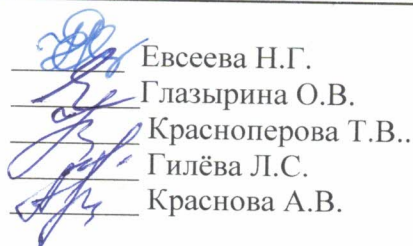 Евсеева Н.Г.
Глазырина О.В.
Красноперова Т.В..
Гилёва Л.С.
Краснова А.В.